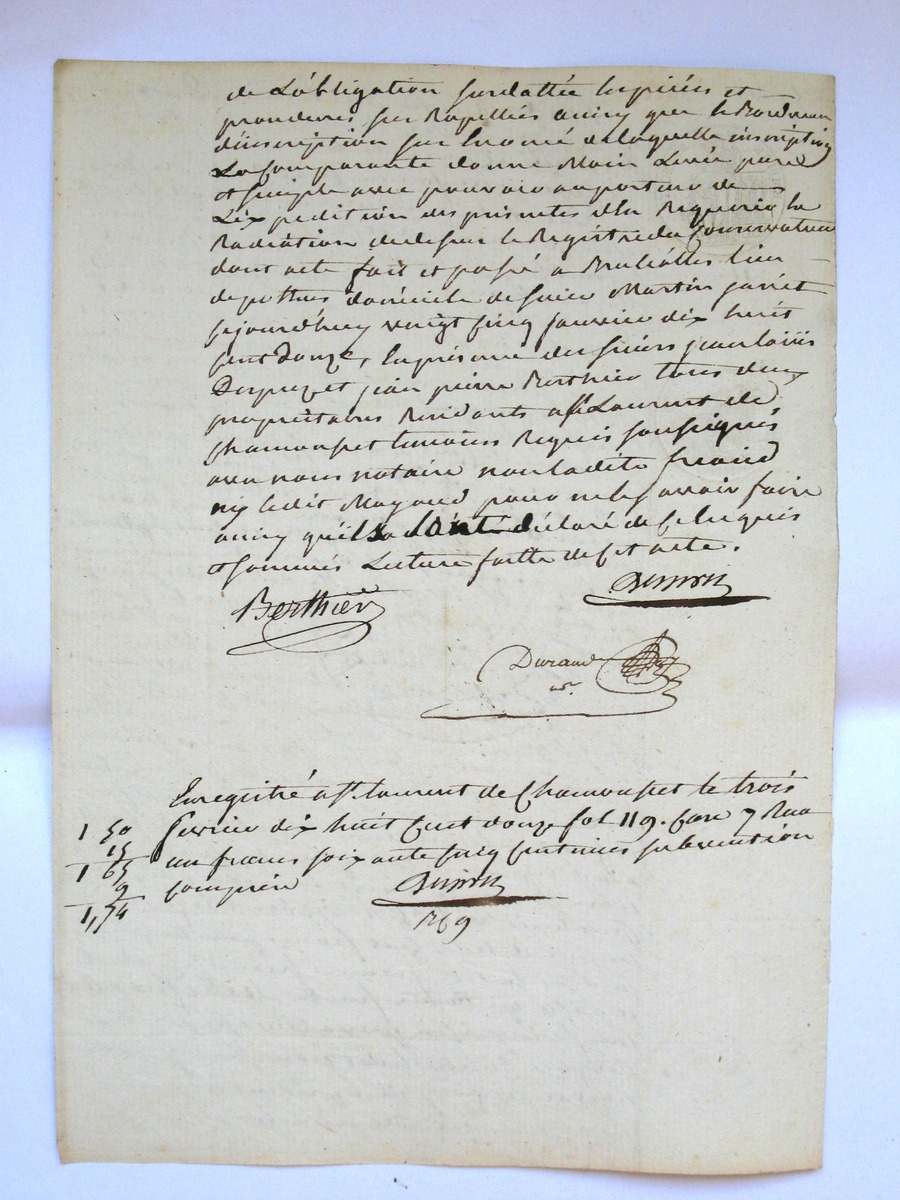 de L'obligation surdattée les pièces et
procedures sus Rapellées ainsy que le Bordereau
d'inscription sur la quelle inscription
La Comparante donne Main Levée pure
et simple avec pouvoir au porteur de
L'expedition des presentes d'En Requerir la
Radiation de dessus le Registre du Conservateur
dont acte fait et passé a lieu
de domicile de sieur Martin
sejourd'huy vingt cinq janvier dix huit
cent Douze, En présence des sieurs jean Louis
et jean pierre Berthier tous deux
propriétaires Residants a St Laurent de
Chamousset temoins Requis soussignés
avec nous notaire non ladite
ny ledit Mayoud pour ne le savoir faire
ainsy qu'ils l'ont déclaré de ce Requis
et sommés Lecture faitte de cet acte.
Berthier
Durand
nre
Enregistré a St. Laurent de Chamousset le trois
fevrier dix huit cent douze fol 119. Case 7 Reçu
un franc soixante cinq centimes subvention
comprise
1 50
15
1 65
9
1,74